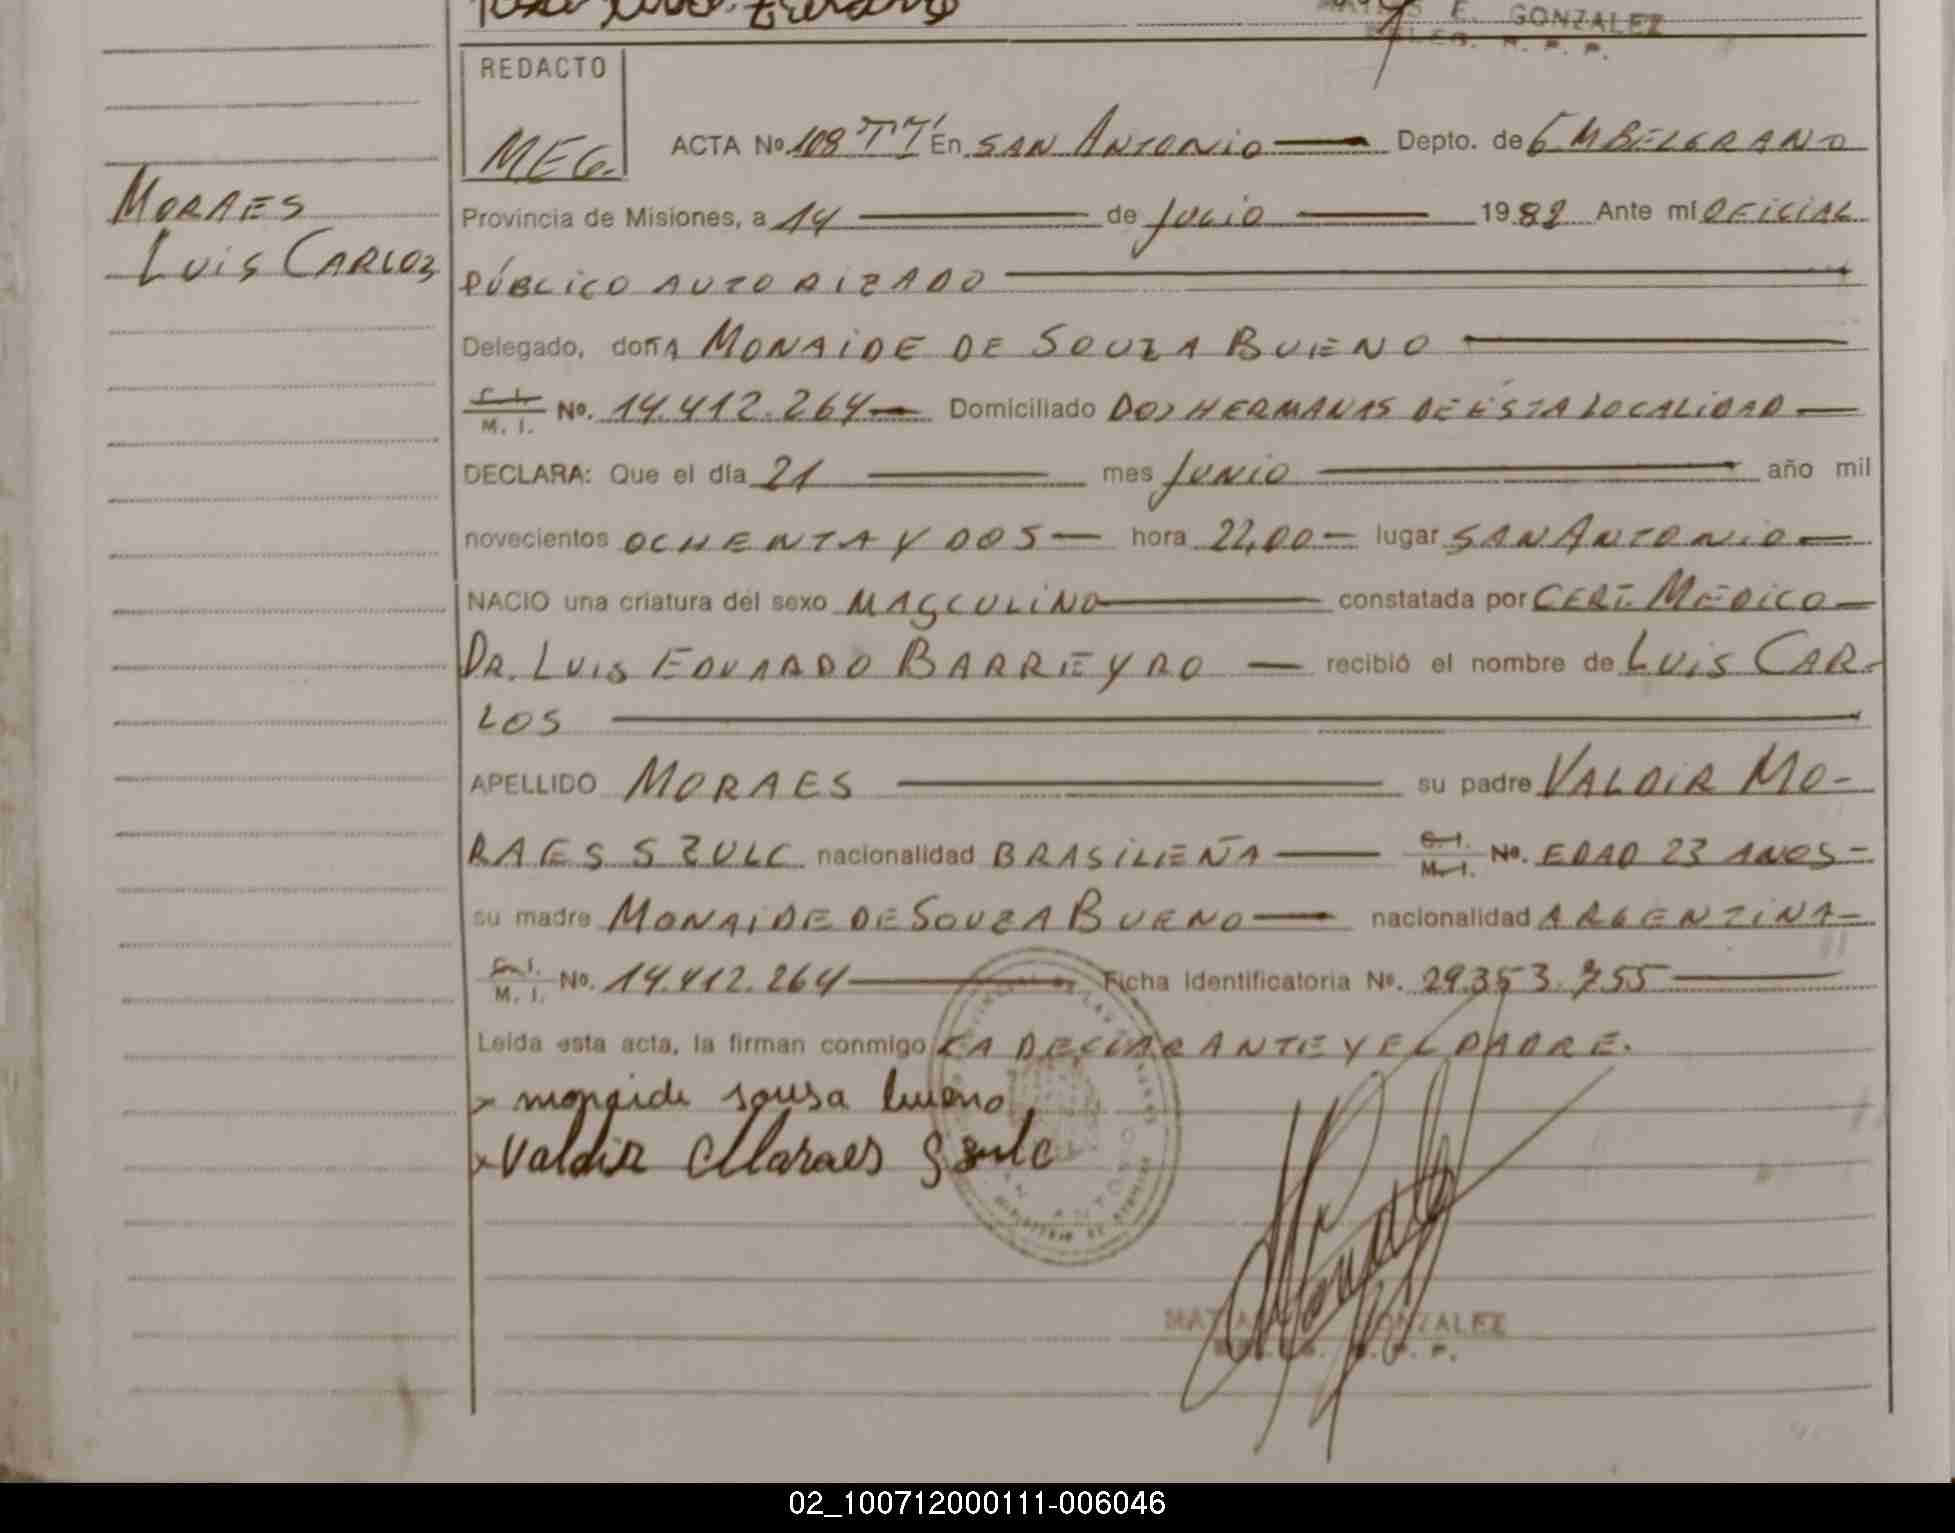 E. GONZALEZ
R. P. P.
REDACTO
MEG.
ACTA No 108 TT En SAN ANTONIO Depto. de G M BELGRANO
MORAES
LUIS CARLOS
Provincia de Misiones, a 14 de JULIO 1982 Ante mí OFICIAL
PÚBLICO AUTORIZADO
Delegado, doñA MONAIDE DE SOUZA BUENO
C. I.
M. I. No. 14.412.264 Domiciliado DOS HERMANAS DE ÉSTA LOCALIDAD
DECLARA: Que el día 21 mes JUNIO año mil
novecientos OCHENTA Y DOS hora 22,00 lugar SAN ANTONIO
NACIO una criatura del sexo MASCULINO constatada por CERT. MÉDICO
DR. LUIS EDUARDO BARRIEYRO recibió el nombre de LUIS CAR-
LOS
APELLIDO MORAES su padre VALDIR MO-
RAES SZULC nacionalidad BRASILIEÑA C. I.
M. I. No. EDAD 23 AÑOS
su madre MONAIDE DE SOUZA BUENO nacionalidad ARGENTINA
C. I.
M. I. No. 14.412.264 Ficha Identificatoria No. 29.353.755
Leída esta acta, la firman conmigo LA DECLARANTE Y EL PADRE.
monaide sousa bueno
Valdir Moraes Szulc
GONZALEZ
02_100712000111-006046